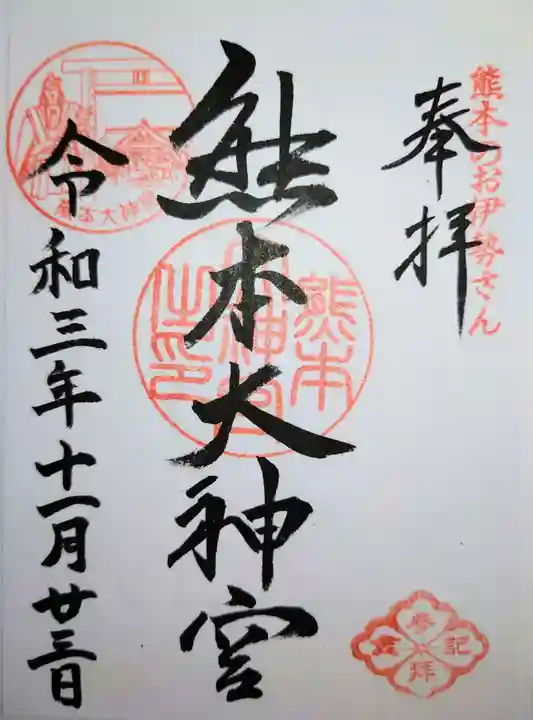 熊本のお伊勢さん
奉拝
熊本大神宮
熊本
大神宮
之印
令和三年十一月廿三日
熊本大神宮
参拝記念